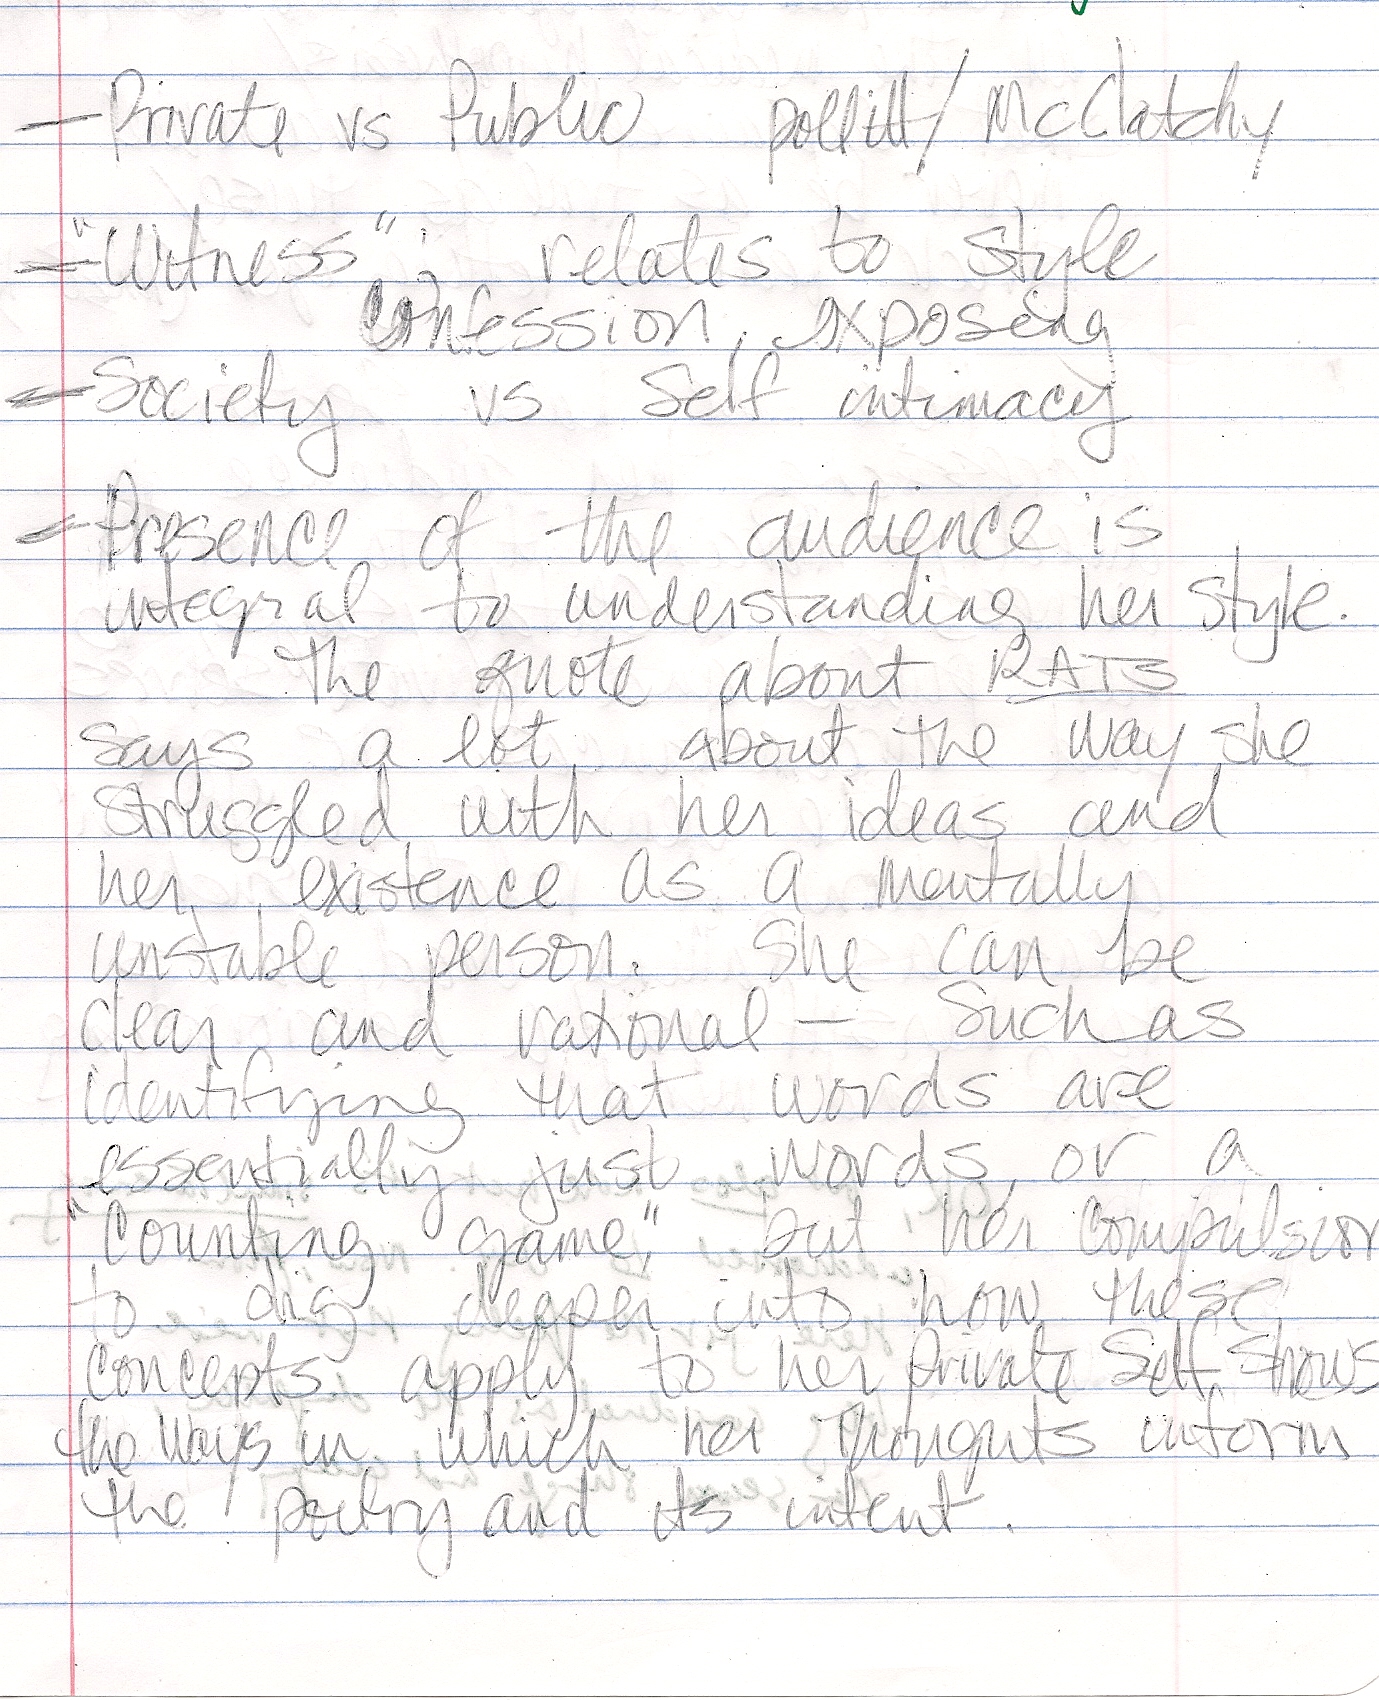 - Private vs Public pollitt/McClatchy
- "Witness": relates to style
confession, exposing
- Society vs Self intimacy
- Presence of the audience is
integral to understanding her style.
The quote about RATS
says a lot about the way she
struggled with her ideas and
her existence as a mentally
unstable person. She can be
clear and rational - Such as
identifying that words are
essentially just words, or a
"Counting game," but her compulsion
to dig deeper into how these
concepts apply to her private self shows
the ways in which her thoughts inform
the poetry and its intent.